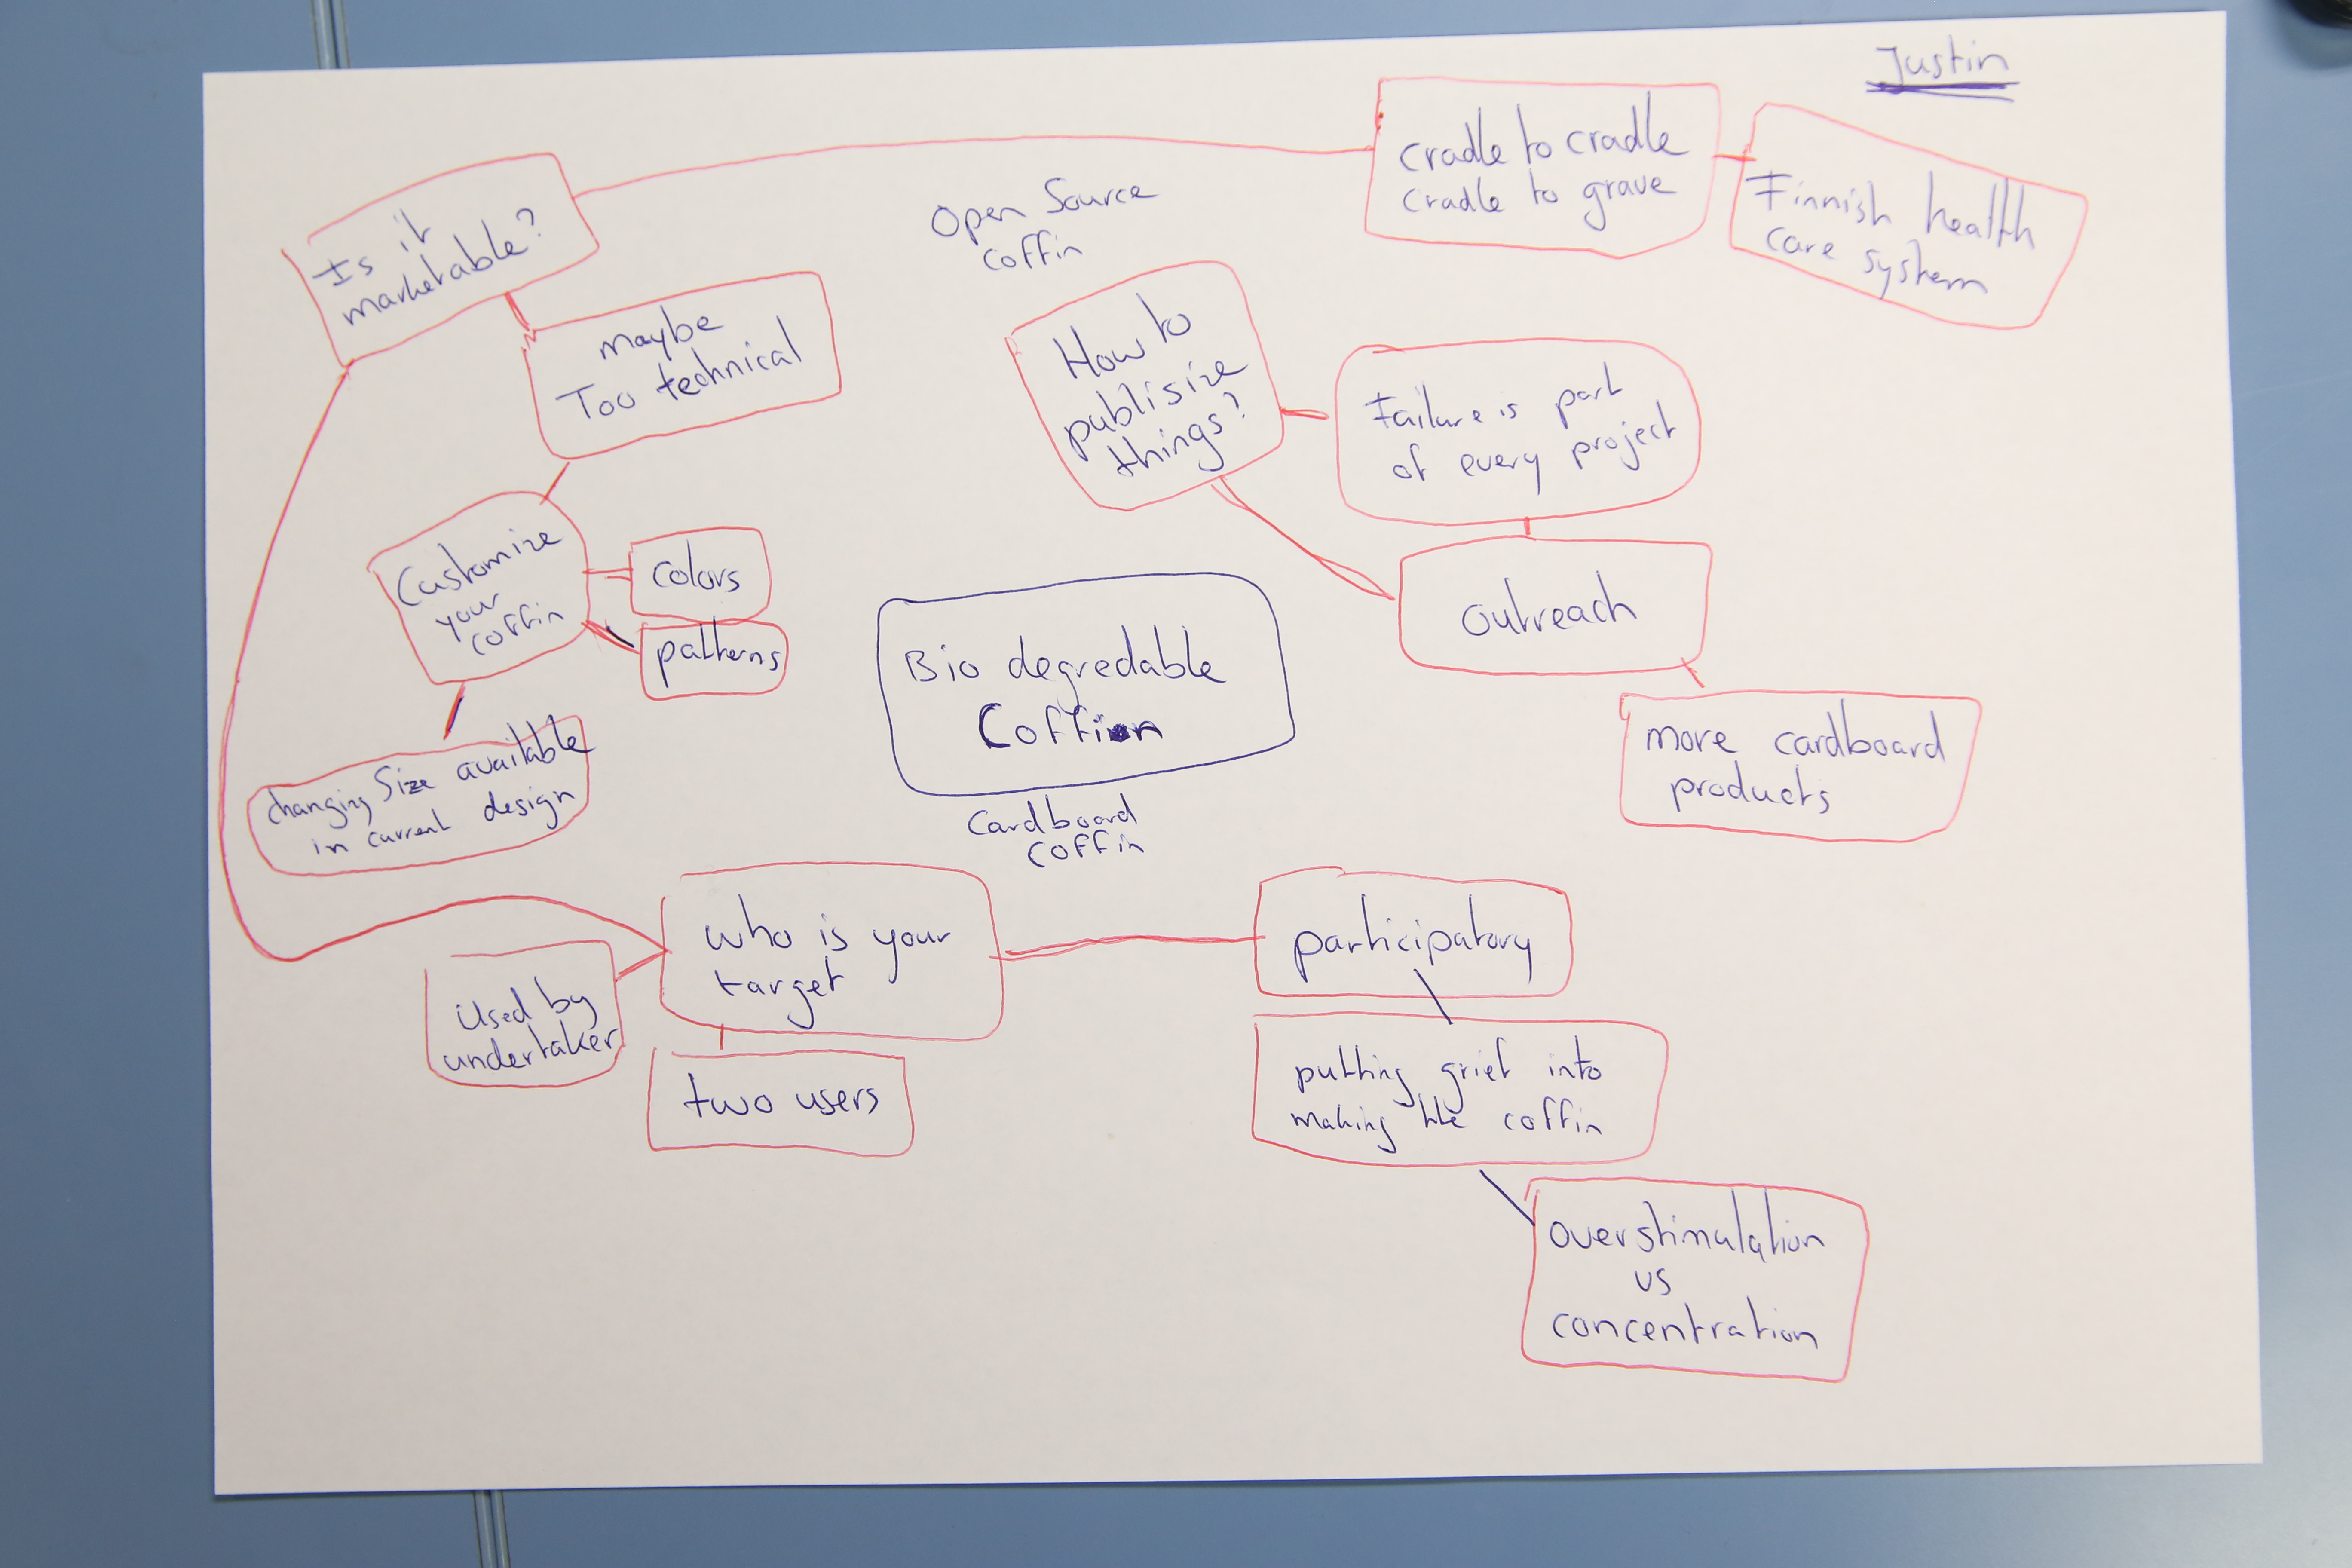 Justin
cradle to cradle
cradle to grave
Finnish health
care system
Is it
marketable?
Open Source
coffin
maybe
Too technical
How to
publisize
things?
Failure is part
of every project
Customize
your
coffin
colors
patterns
outreach
Bio degredable
Coffin
more cardboard
products
changing size available
in current design
Cardboard
coffin
who is your
target
participatory
Used by
undertaker
two users
putting grief into
making the coffin
overstimulation
vs
concentration